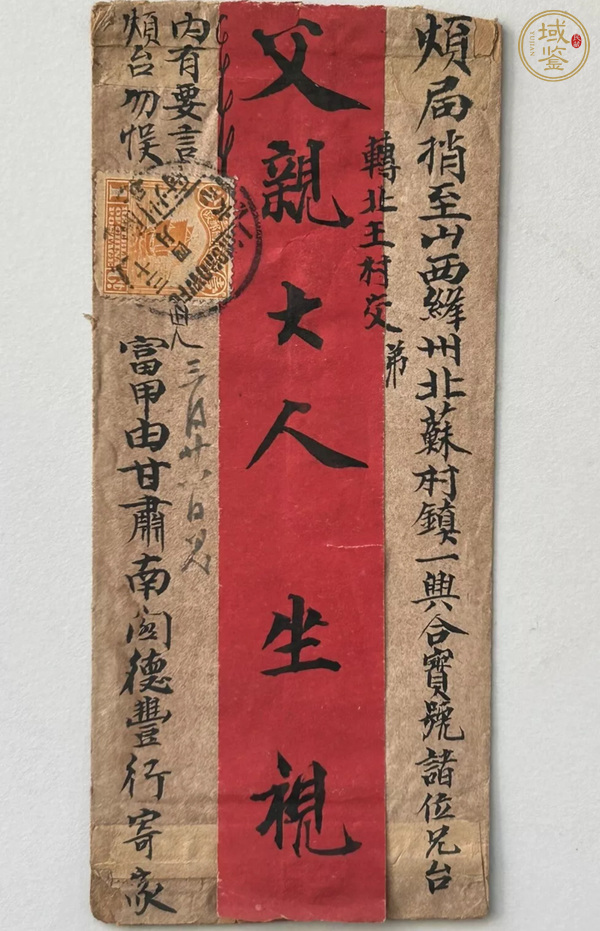 煩局捎至山西絳州北蘇村鎮一興合寶號諸位兄台
轉北王村交
弟
父親大人坐視
內有要言
煩台勿悮
三月廿六日
富甲由甘肅南閣德豐行寄家
域鉴
YUJIAN